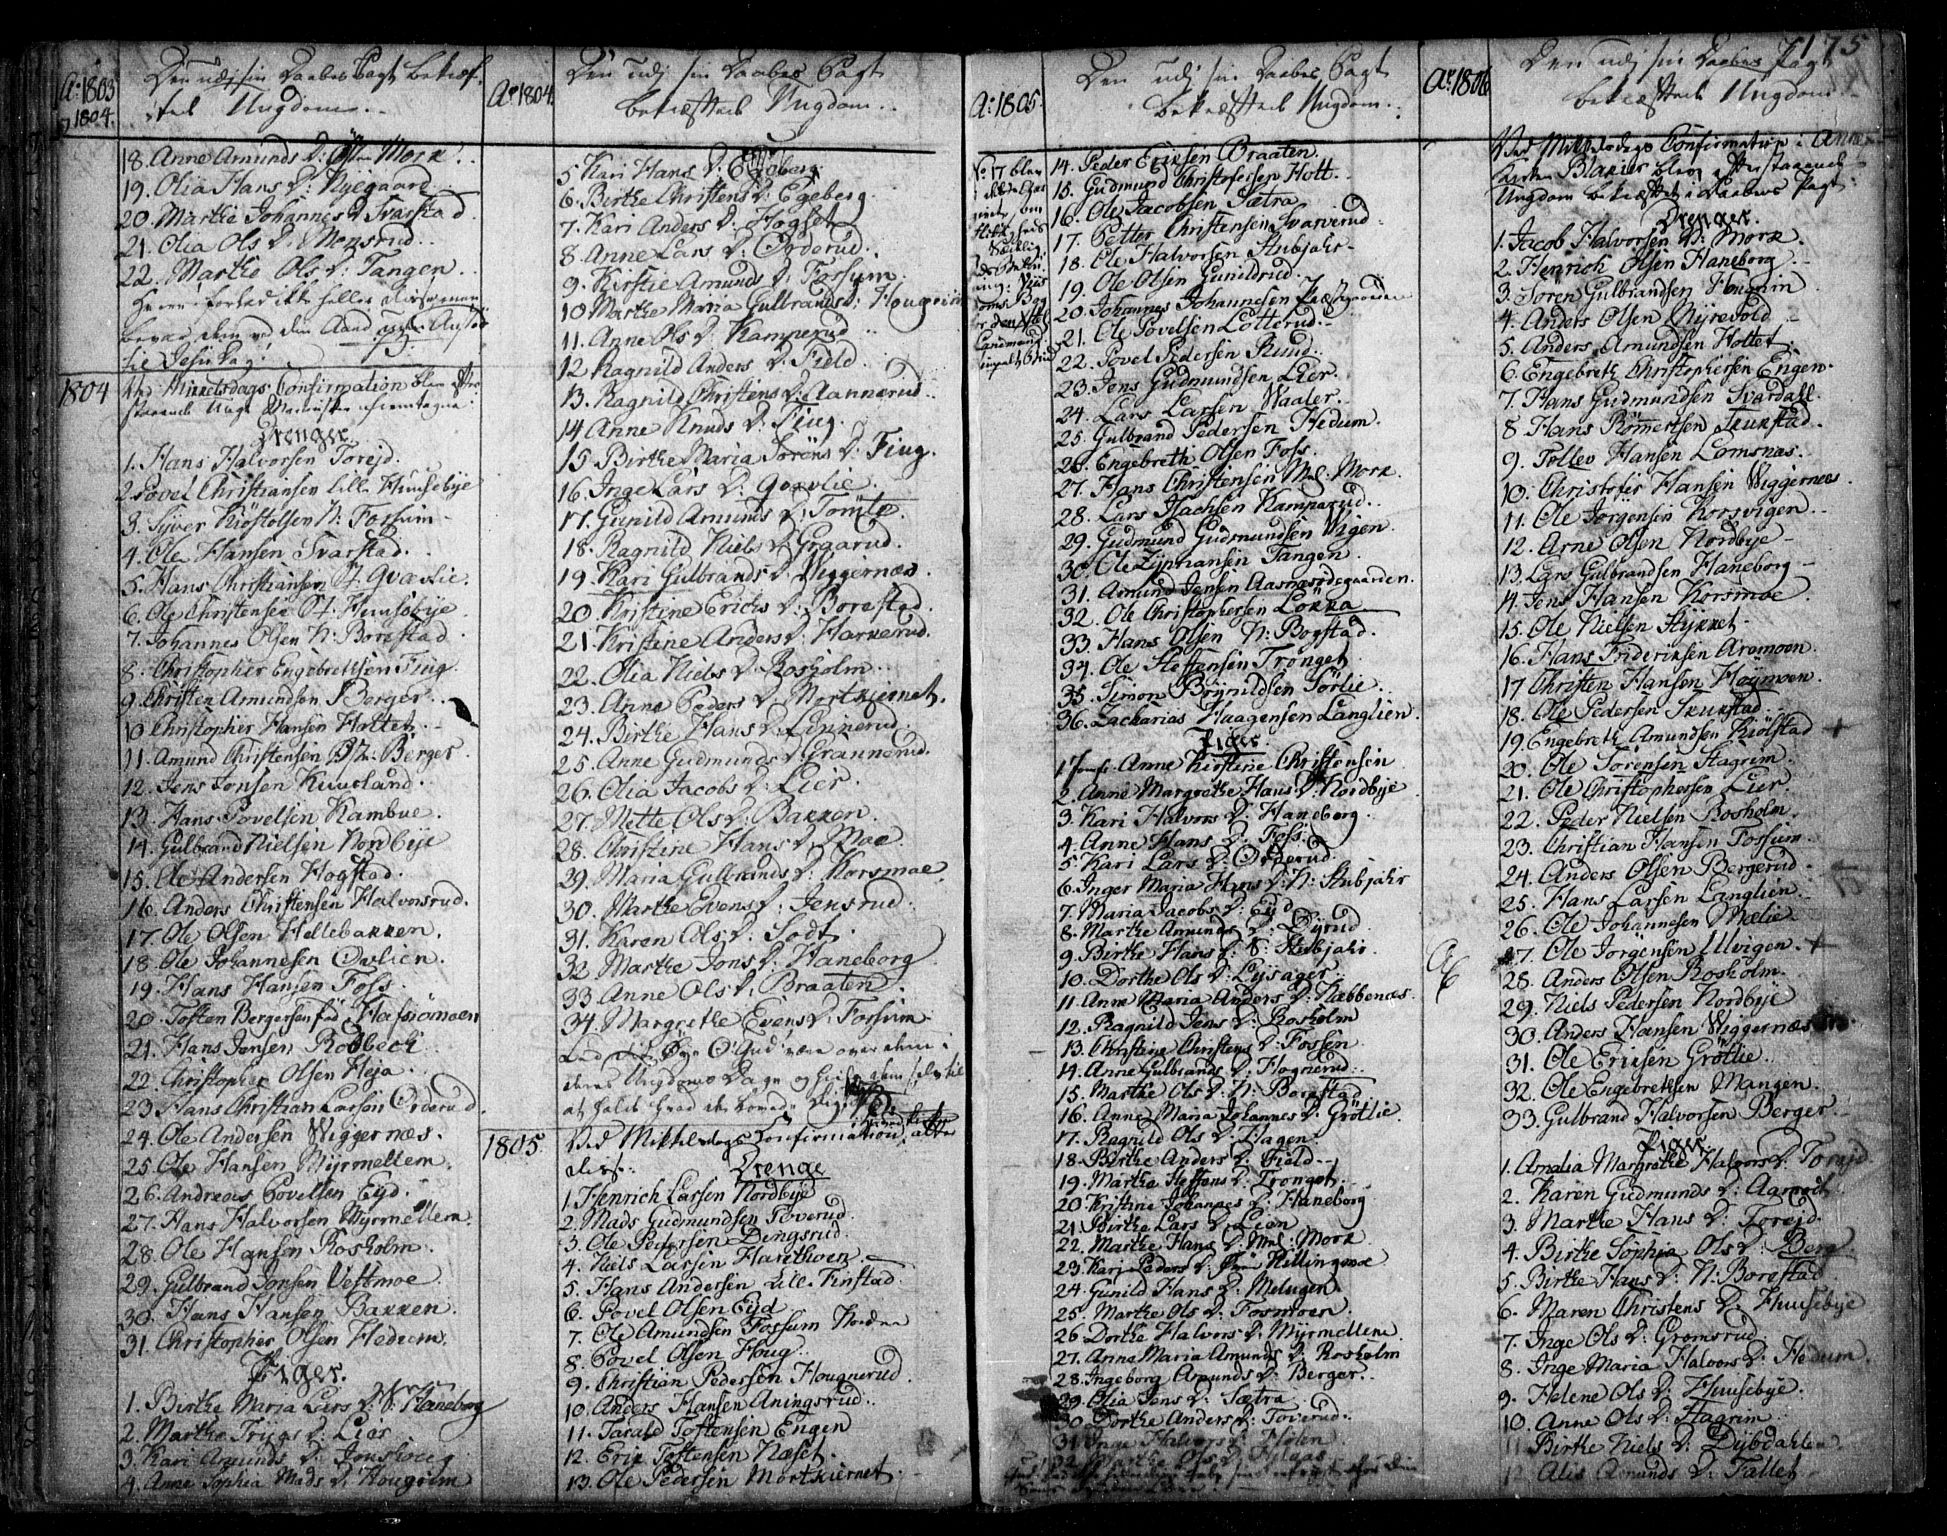 Ao 1803
1804.
Den udj sin Daabes Pagt bekræf-
tet Ungdom.
18. Anne Amunds D: Øfre Mork.
19. Olia Hans D: Nyegaard
20. Marthe Johannes D: Svarstad
21. Olia Ols D: Monsrud.
22. Marthe Ols D: Tangen.
til Jesu Dag!
1804
Ved Mikkelsdags Confirmation blev
Drenger.
1. Hans Halvorsen Torejd.
2. Povel Christiansen lille Huusebye
3. Syver Kiöstolsen N: Fossum
4. Ole Hansen Svarstad.
5. Hans Christiansen St. Qvævlie.
6. Ole Christensen St. Huusebye
7. Johannes Olsen N: Borestad
8. Christopher Engebrethsen Fiug.
9. Christen Amundsen Berger.
10. Christopher Hansen Hottet.
11. Amund Christensen Berger.
12. Jens Jensen Kuusland.
13. Hans Povelsen Kambue.
14. Gulbrand Nielsen Nordbye
15. Ole Andersen Hogstad.
16. Anders Christensen Halvorsrud.
17. Ole Olsen Hellebakken.
18. Ole Johannesen Ovlien.
19. Hans Hansen Foss.
20. Tosten Bergersen
21. Hans Jensen Rodbeck
22. Christopher Olsen Heja.
23. Hans Christian Larsen Orderud.
24. Ole Andersen Wiggernæs.
25. Ole Hansen Myrmellem.
26. Andreas Povelsen Eyd.
27. Hans Halvorsen Myrmellem.
28. Ole Hansen Rosholm.
29. Gulbrand Jonsen Vestmoe.
30. Hans Hansen Bakken.
31. Christopher Olsen Hedum.
Piger.
1. Birthe Maria Lars D: S. Haneborg
2. Marthe Trygs D: Lier
3. Kari Amunds D:
4. Anne Sophia Mads D: Hougrim
Ao 1804.
Den udj sin Daabes Pagt
bekræfftet Ungdom.
5. Kari Hans D: Egeberg
6. Birthe Christens D: Egeberg.
7. Kari Anders D: Hogset
8. Anne Lars D: Orderud.
9. Kirstie Amund D: Fossum
10. Marthe Maria Gulbrands D: Hougrim
11. Anne Ols D: Kamperud
12. Ragnild Anders D: Field.
13. Ragnild Christens D: Aannerud
14. Anne Knuds D: Fiug.
15. Birthe Maria Sörens D: Fiug.
16. Inge Lars D: Qvævlie.
17. Gunild Amunds D: Tomte.
18. Ragnild Niels D: Ergarud.
19. Kari Gulbrands D: Wiggernæs.
20. Kristine Erichs D: Borestad.
21. Kristine Anders D: Harkerud.
22. Olia Niels D: Rosholm
23. Anne Peders D: Mortkiernet.
24. Birthe Hans D: Linnerud.
25. Anne Gudmunds D: Grannerud.
26. Olia Jacobs D: Lier.
27. Mette Ols D: Bakken.
28. Christine Hans D: Moe.
29. Maria Gulbrands D: Korsmoe.
30. Marthe Evens D: Jensrud.
31. Karen Ols D: Sodt.
32. Marthe Jons D: Haneborg
33. Anne Ols D: Braaten.
34. Margrethe Evens D: Fossum
Lad dit Øye O! Gud være over dem i
deres Ungdoms Dage
1805
Ved Mikkelsdags Confirmation
Drenge
1. Henrich Larsen Nordbye
2. Mads Gudmundsen Toverud.
3. Ole Pedersen Dingsrud.
4. Niels Larsen Harethoen
5. Hans Andersen Lille Kinstad.
6. Povel Olsen Eyd
7. Ole Amundsen Fossum Nordre
8. Povel Olsen Houg.
9. Christian Pedersen Hougnerud.
10. Anders Hansen Aningsrud.
11. Tarald Tostensen Engen
12. Erik Tostensen Næset.
13. Ole Pedersen Mortkiernet
Ao 1805.
Den udj sin Daabes Pagt
bekræfftet Ungdom.
14. Peder Eriksen Braaten.
15. Gudmund Christophersen Holt.
16. Ole Jacobsen Sætra
17. Petter Christensen Svarverud.
18. Ole Halvorsen Stubjahr
19. Ole Olsen Gunildrud.
20. Johannes Johannesen Præstgaarden
21. Ole Povelsen Lotterud.
22. Povel Pedersen Ruud.
23. Jens Gudmundsen Lier.
24. Lars Larsen Waaler.
25. Gulbrand Pedersen Hedum.
26. Engebreth Olsen Foss.
27. Hans Christensen Mel: Mork.
28. Lars Isachsen Kamparud.
29. Gudmund Gudmundsen Wigen.
30. Ole Zyprianssen Tangen.
31. Amund Jensen Aasnæsødegaarden.
32. Ole Christophersen Lökka
33. Hans Olsen N: Bogstad.
34. Ole Steffensen Tronget.
35. Simon Brynildsen Sörlie.
36. Zacharias Haagensen Langlien.
Piger
1. Jomf. Anne Kirstine Christensen
2. Anne Margrethe Hans D: Nordbye
3. Kari Halvors D: Haneborg.
4. Anne Hans D: Foss.
5. Kari Lars D: Orderud.
6. Inger Maria Hans D: N: Stubjahr
7. Maria Jacobs D: Eyd
8. Marthe Amunds D: Dyrud.
9. Birthe Hans D: S. Stubjahr
10. Dorthe Ols D: Lysager.
11. Anne Maria Anders D: Nabbenæs.
12. Ragnild Jens D: Rosholm
13. Christine Christens D: Fossen
14. Anne Gulbrands D: Hognerud.
15. Marthe Ols D: N: Borestad
16. Anne Maria Johannes D: Grötlie
17. Ragnild Ols D: Hagen
18. Birthe Anders D: Field
19. Marthe Steffens D: Tronget.
20. Kristine Johannes D: Haneborg
21. Birthe Lars D: Lien
22. Marthe Hans D: Mel: Mork
23. Kari Peders D: Øfre Killingmoe
24. Gunild Hans D: Melnigen
25. Marthe Ols D: Fosmoen.
26. Dorthe Halvors D: Myrmellem
27. Anne Maria Amunds D: Rosholm
28. Ingeborg Amunds D: Berger.
29. Olia Jens D: Sætra
30. Dorthe Anders D: Toverud.
31. Inge Halvors D: Holen
32. Marthe Ols D:
Ao 1806
175
Den udj sin Daabes Pagt
bekræfftet Ungdom
Ved Mikkelsdags Confirmation i Annex
Kirken Blakier blev efterstaaende
Ungdom bekræfftet i Daabens Pagt.
Drenger.
1. Jacob Halvorsen N: Mork.
2. Henrich Olsen Haneborg
3. Sören Gulbrandsen Hougrim
4. Anders Olsen Nyrevold
5. Anders Amundsen Hottet.
6. Engebreth Christophersen Engen.
7. Hans Gudmundsen Svardall.
8. Hans Römertsen Skukstad.
9. Tollev Hansen Lomsnæs.
10. Christofer Hansen Wiggernæs.
11. Ole Jörgensen Korsvigen.
12. Arne Olsen Nordbye
13. Lars Gulbrandsen Haneborg
14. Jens Hansen Korsmoe.
15. Ole Nielsen Stykket
16. Hans Frideriksen Aremoen.
17. Christen Hansen Høymoen.
18. Ole Pedersen Skukstad.
19. Engebreth Amundsen Kiölstad +
20. Ole Sörensen Hagrim.
21. Ole Christophersen Lier.
22. Peder Nielsen Rosholm.
23. Christian Hansen Fossum.
24. Anders Olsen Bergerud.
25. Hans Larsen Langlien.
26. Ole Johannesen Mælie.
27. Ole Jörgensen Ulvigen. +
28. Anders Olsen Rosholm.
29. Niels Pedersen Nordbye
30. Anders Hansen Wiggernæs
31. Ole Eriksen Grötlie.
32. Ole Engebrethsen Mangen.
33. Gulbrand Halvorsen Berger
Piger.
1. Amalia Margrethe Halvors D: Torejd
2. Karen Gudmunds D: Aamodt
3. Marthe Hans D: Torejd.
4. Birthe Sophia Ols D: Berg.
5. Birthe Hans D: N: Borestad
6. Maren Christens D: Huusebye
7. Inge Ols D: Gromsrud
8. Inge Maria Halvors D: Hedum.
9. Helene Ols D: Huusebye.
10. Anne Ols D: Hagrim
11. Birthe Niels D: Dybdahlen
12. Alis Amunds D: Tallet